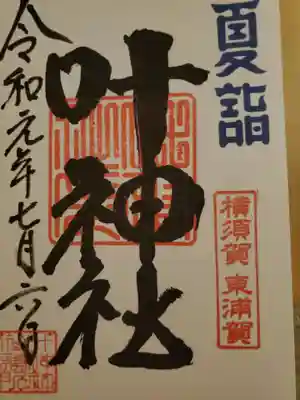 夏詣
横須賀 東浦賀
叶神社
令和元年七月六日